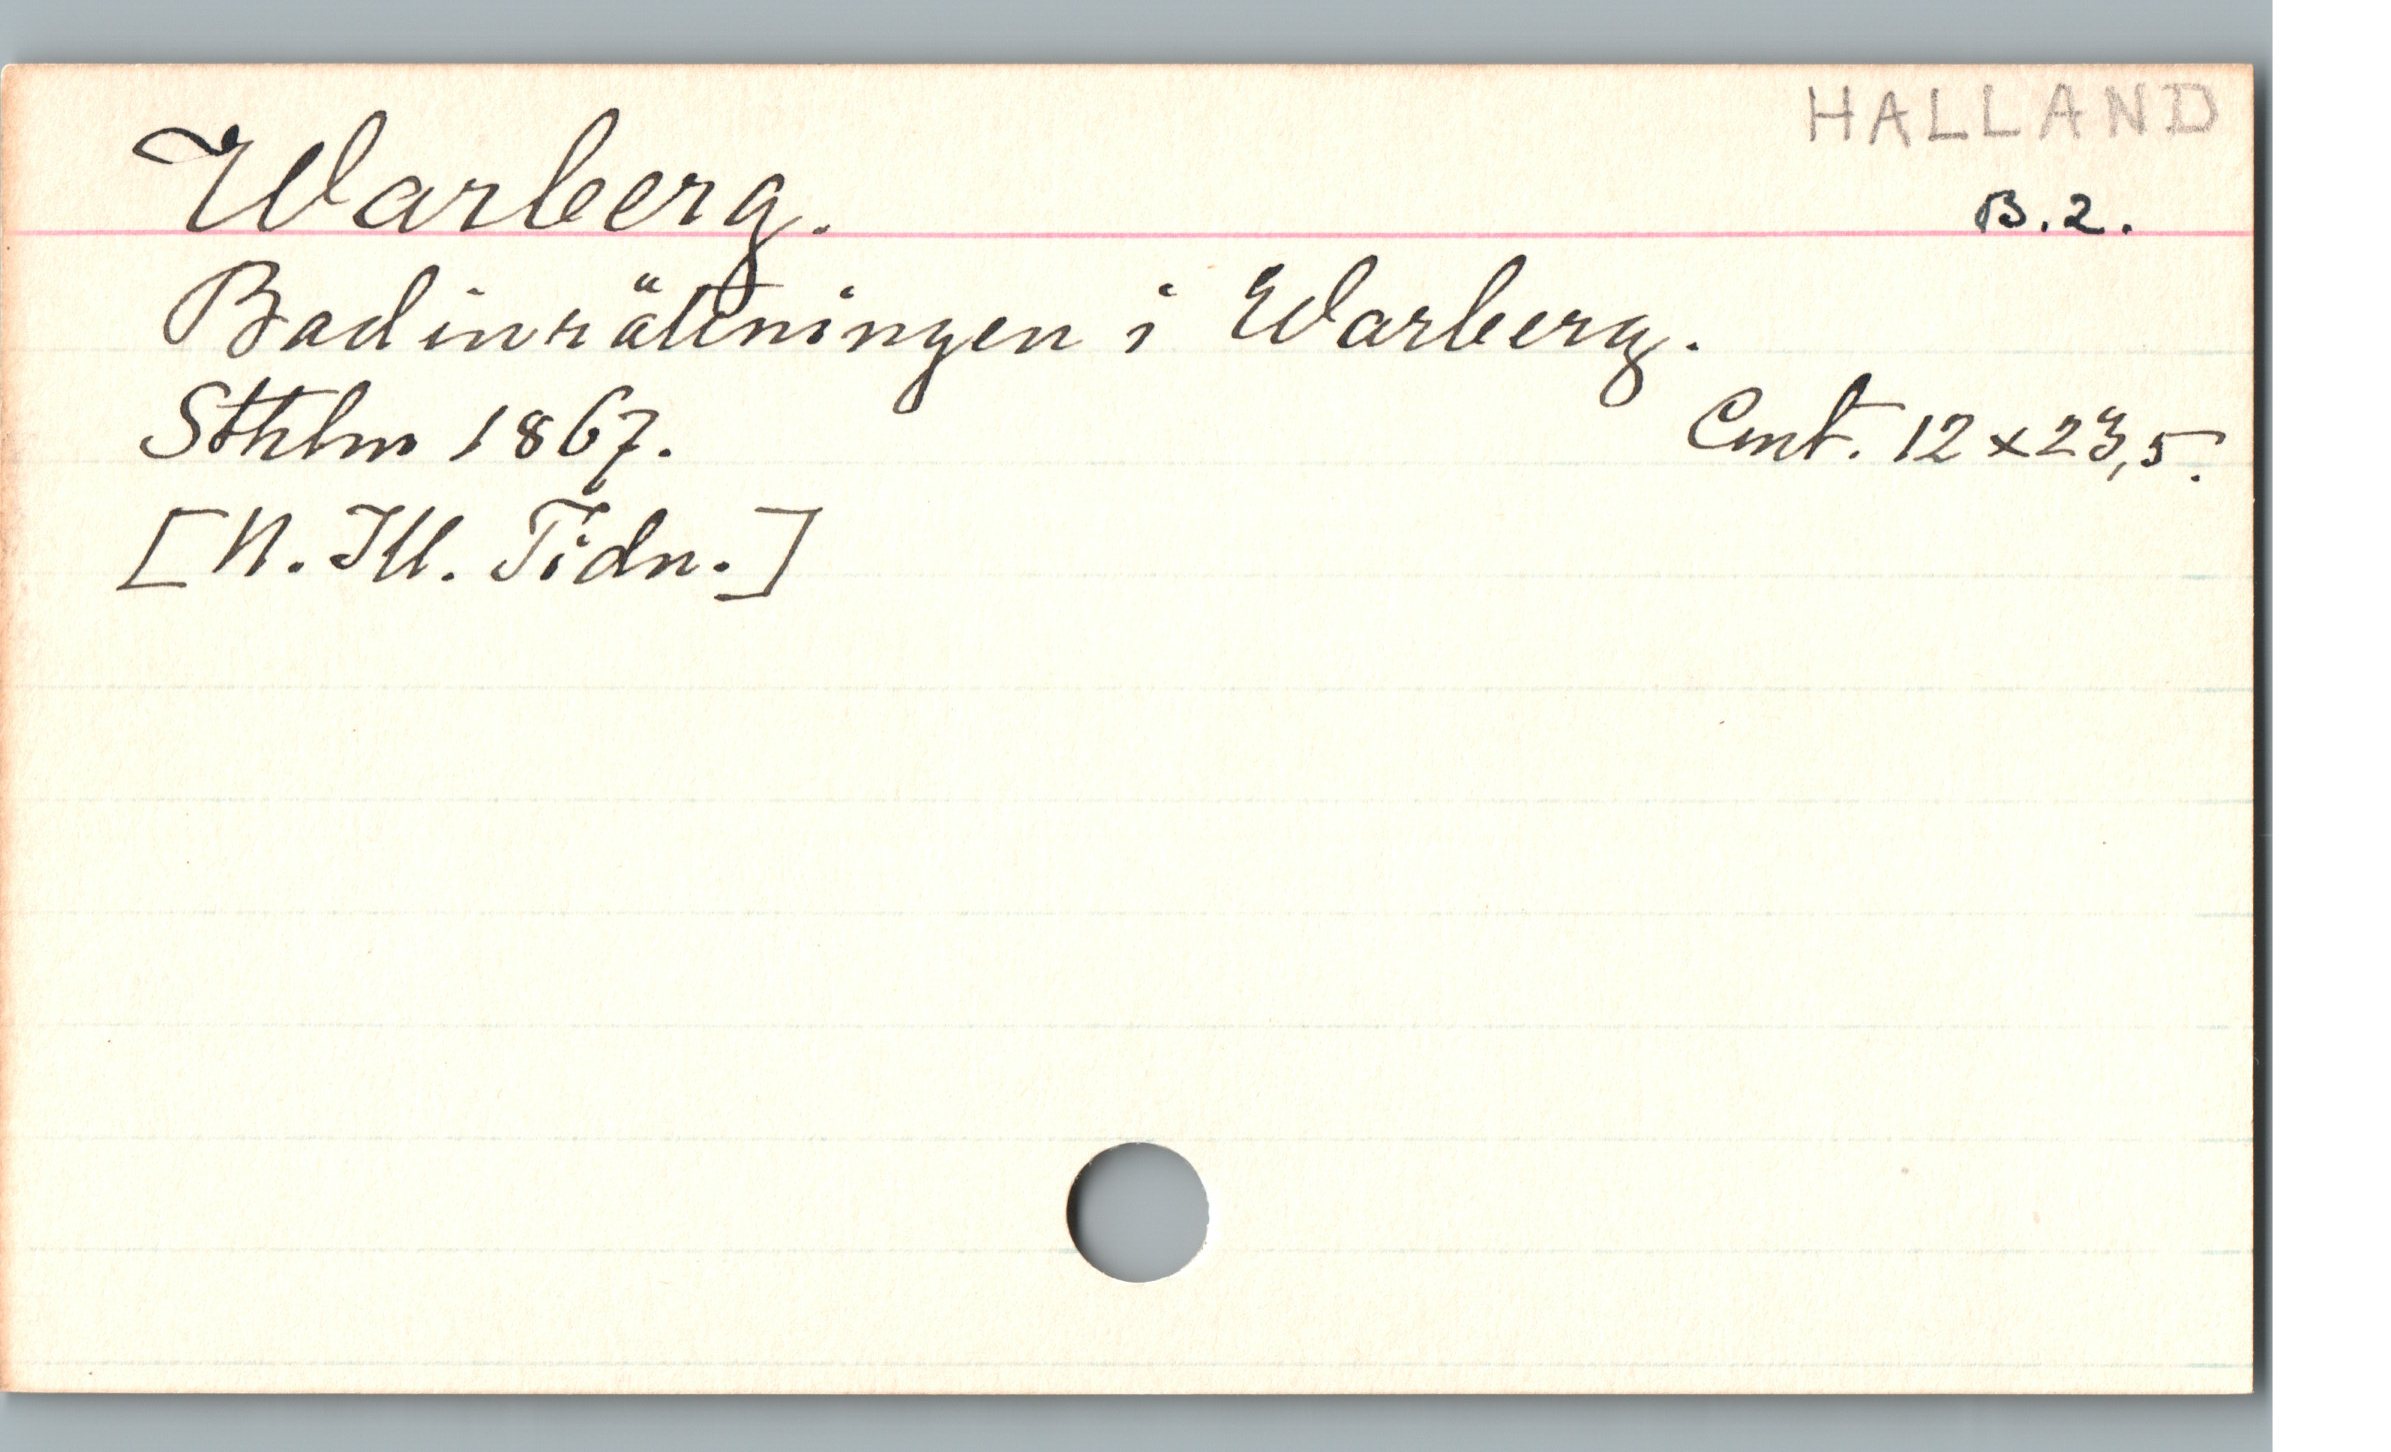 HALLAND
Warberg.
B.2.
Badinrättningen i Warberg.
Sthlm 1867.
Cmt. 12 x 23,5.
[N. Ill. Tidn.]